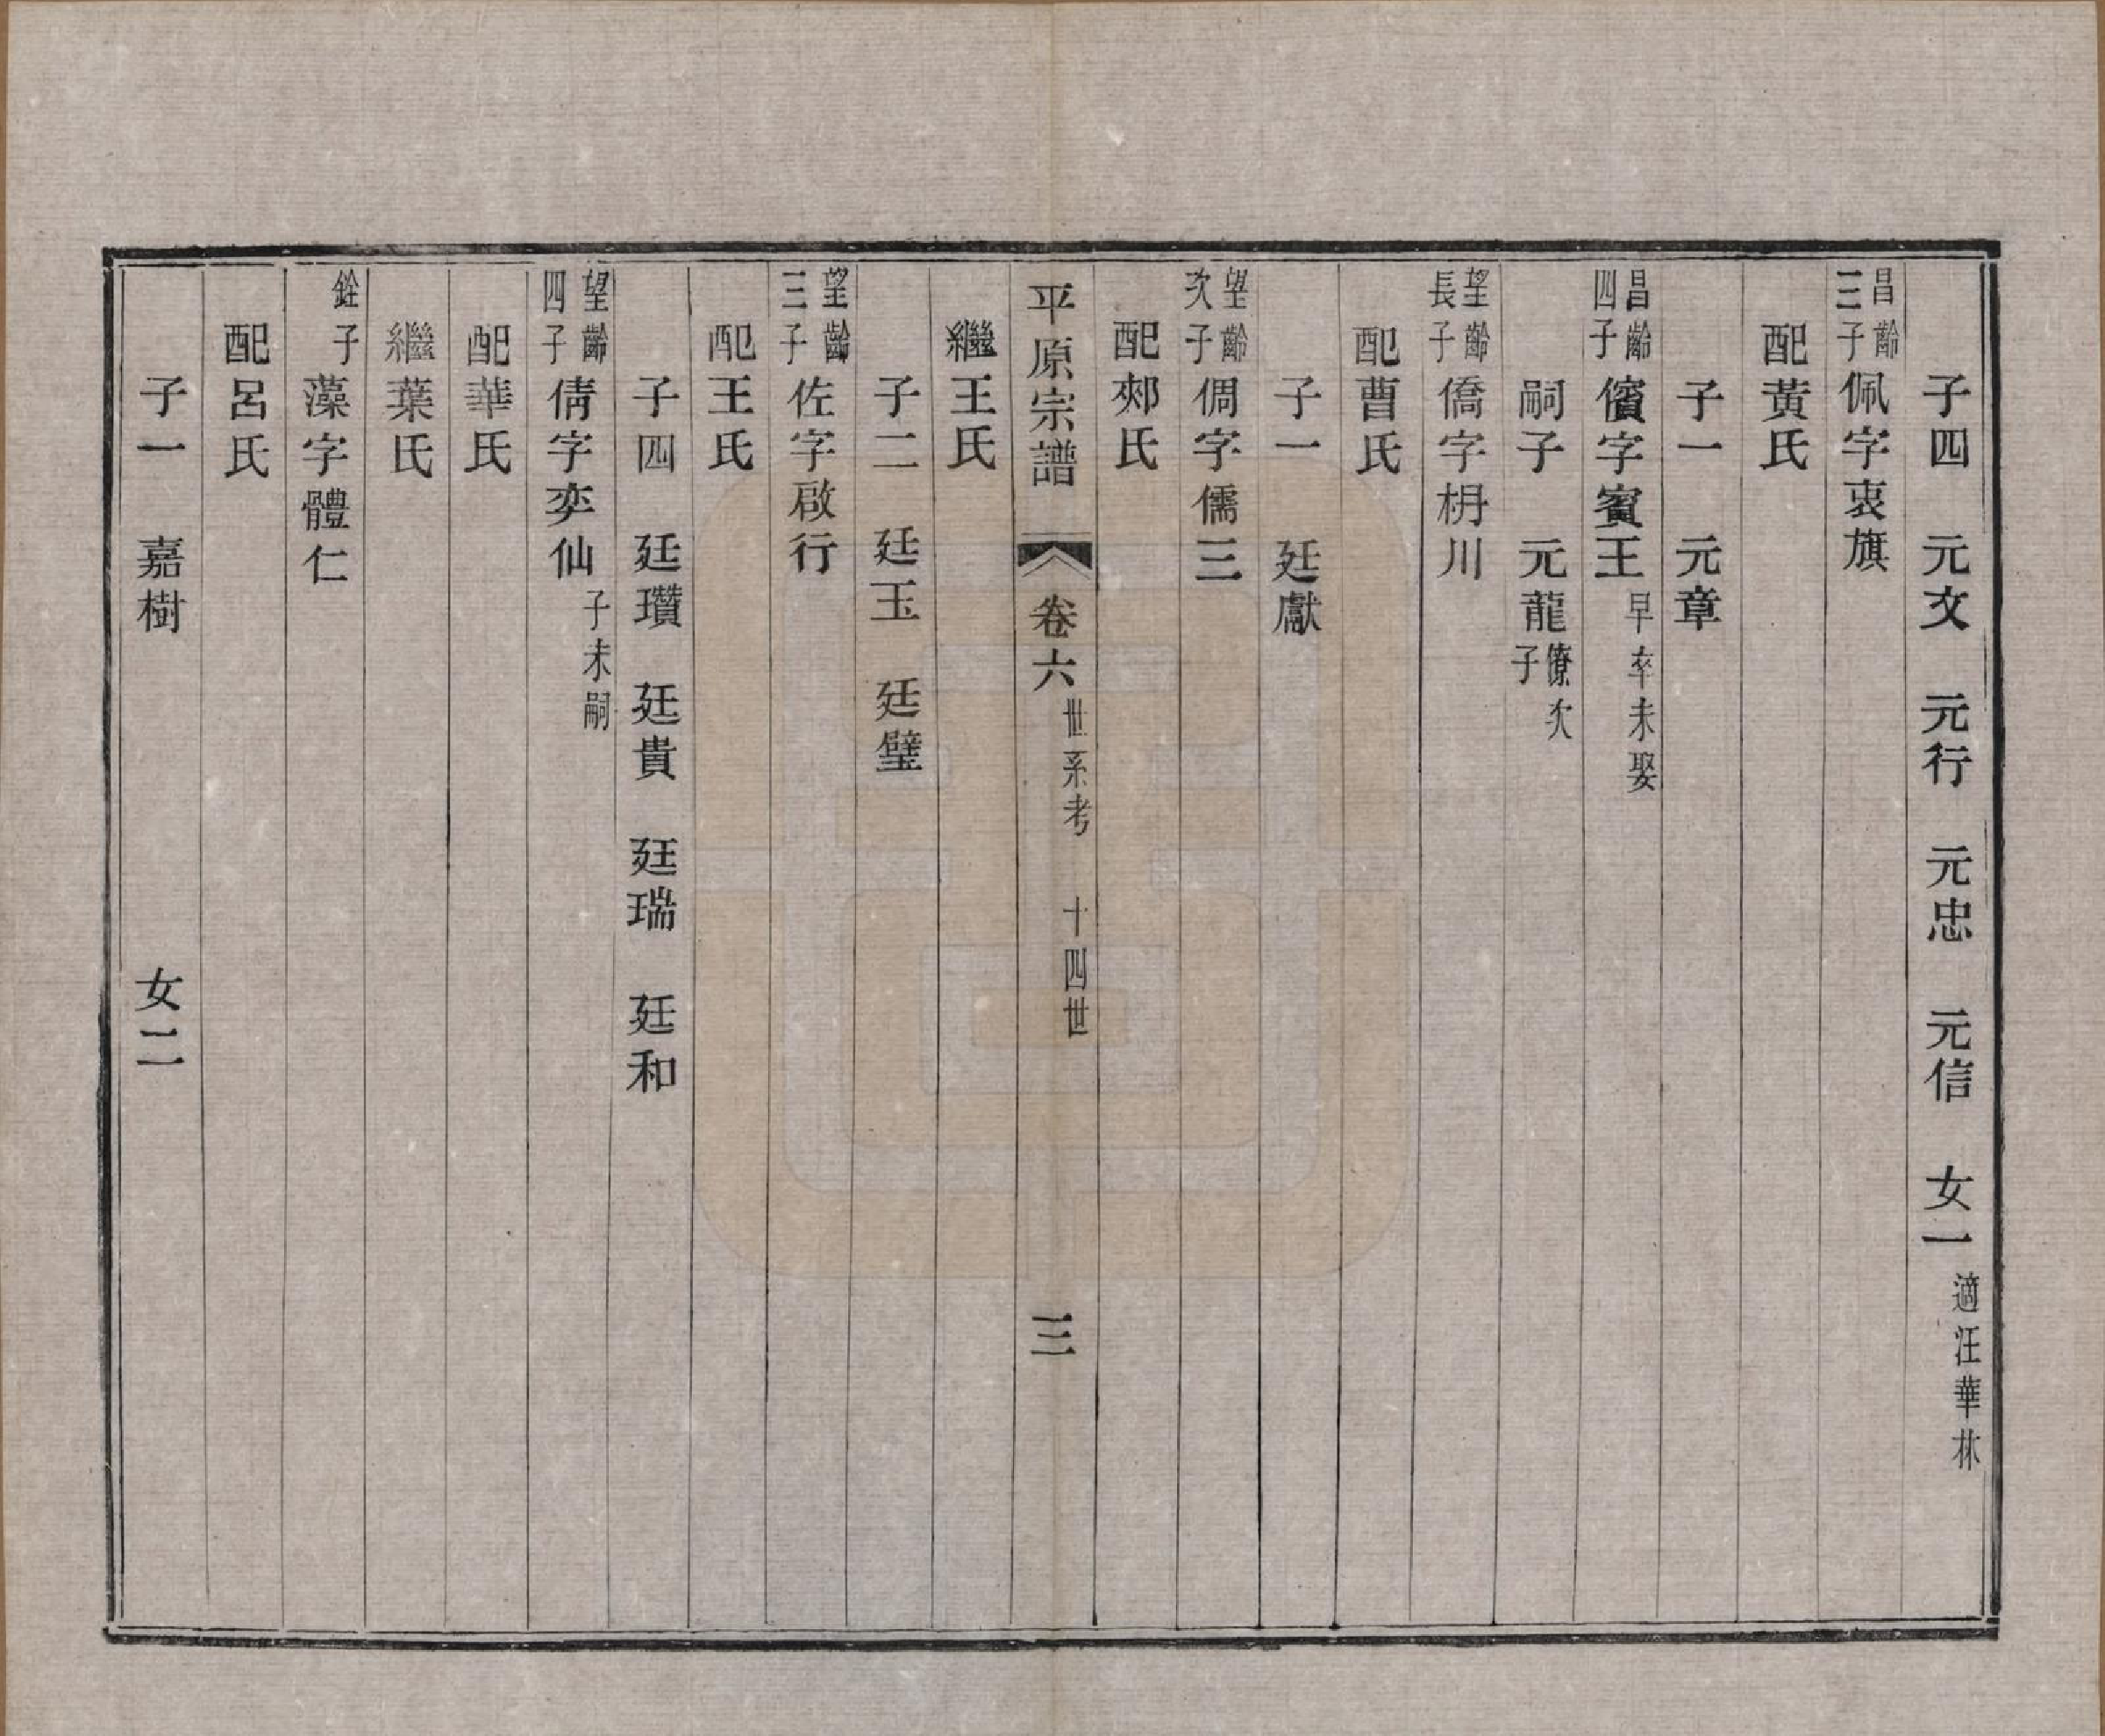 子四　元文　元行　元忠　元信　女一適汪華林
昌齡三子佩字衷旗
配黃氏
子一　元章
昌齡四子儐字賓王早卒未娶
嗣子　元龍僚次子
望齡長子僑字枬川
配曹氏
子一　廷獻
望齡次子倜字儒三
配郟氏
平原宗譜　卷六世系考　十四世　三
繼王氏
子二　廷玉　廷璧
望齡三子佐字啟行
配王氏
子四　廷瓚　廷貴　廷瑞　廷和
望齡四子倩字奕仙子未嗣
配華氏
繼葉氏
銓子藻字體仁
配呂氏
子一　嘉樹　女二